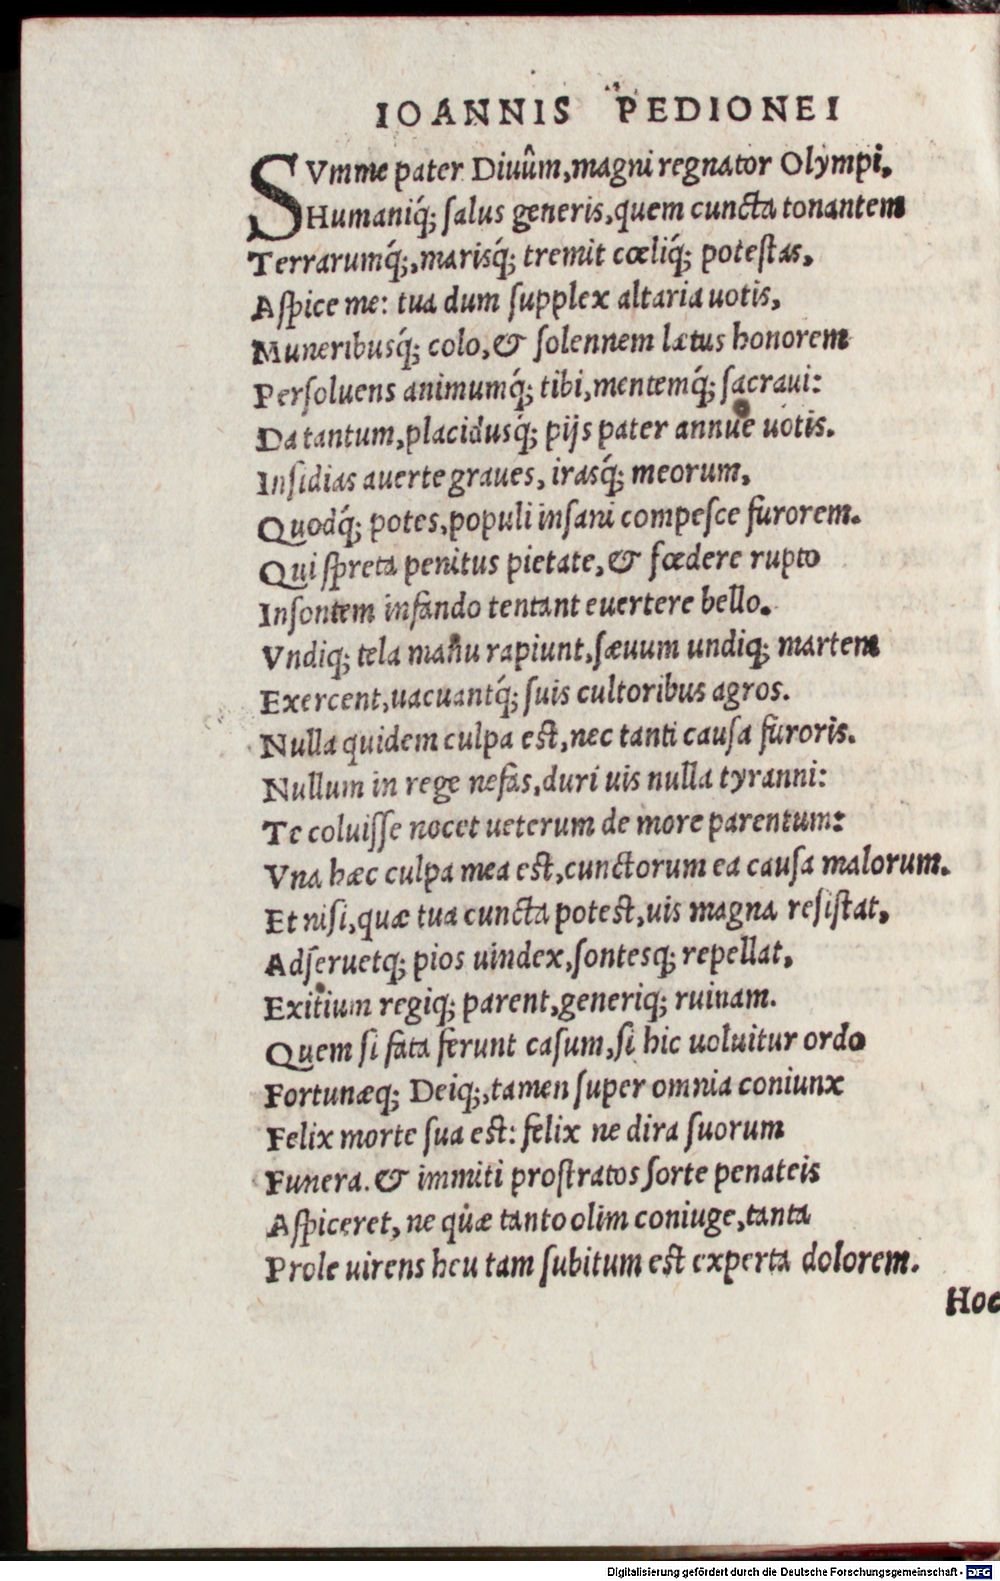 IOANNIS PEDIONEI
SVmme pater Diuûm, magni regnator Olympi,
Humaniq́; ſalus generis, quem cuncta tonantem
Terrarumq́;, marisq́; tremit cœliq́; poteſtas,
Aſpice me: tua dum ſupplex altaria uotis,
Muneribusq́; colo, & ſolennem lætus honorem
Perſoluens animumq́; tibi, mentemq́; ſacraui:
Da tantum, placidusq́; pijs pater annue uotis.
Inſidias auerte graues, irasq́; meorum,
Quodq́; potes, populi inſani compeſce furorem.
Qui ſpreta penitus pietate, & fœdere rupto
Inſontem infando tentant euertere bello.
Vndiq; tela manu rapiunt, ſæuum undiq; martem
Exercent, uacuantq́; ſuis cultoribus agros.
Nulla quidem culpa eſt, nec tanti cauſa furoris.
Nullum in rege nefas, duri uis nulla tyranni:
Te coluiſſe nocet ueterum de more parentum:
Vna hæc culpa mea eſt, cunctorum ea cauſa malorum.
Et niſi, quæ tua cuncta potest, uis magna reſiſtat,
Adſeruetq; pios uindex, ſontesq; repellat,
Exitium regiq; parent, generiq; ruinam.
Quem ſi fata ferunt caſum, ſi hic uoluitur ordo
Fortunæq; Deiq;, tamen ſuper omnia coniunx
Felix morte ſua eſt: felix ne dira ſuorum
Funera. & immiti proſtratos ſorte penateis
Aſpiceret, ne quæ tanto olim coniuge, tanta
Prole uirens heu tam ſubitum eſt experta dolorem.
Hoc
Digitalisierung gefördert durch die Deutsche Forschungsgemeinschaft - DFG